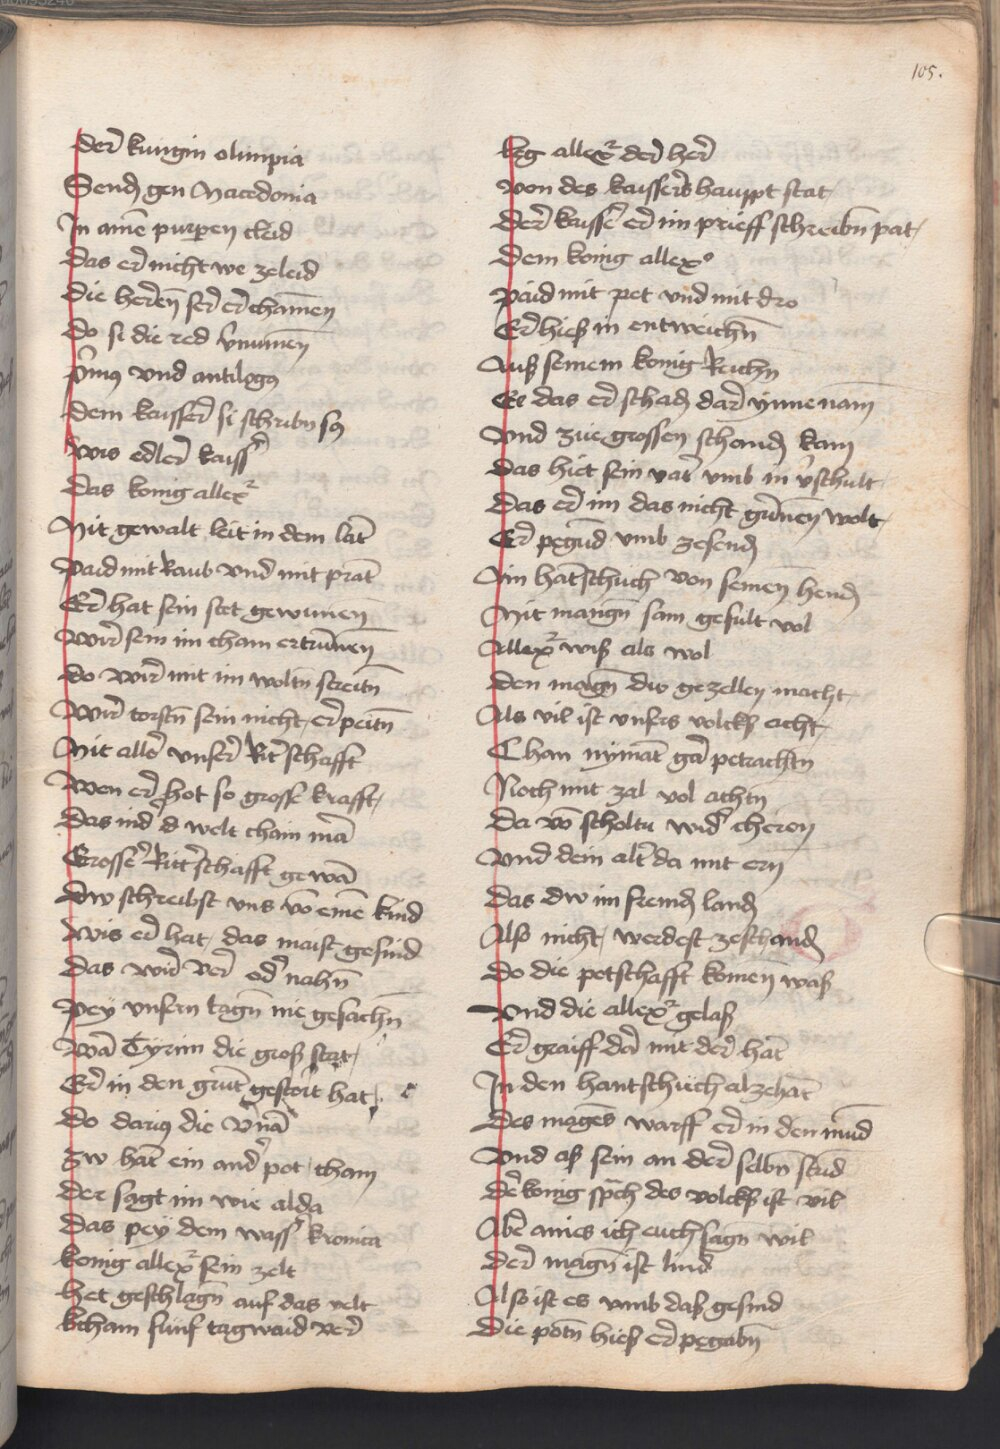 105.
Der kungin olimpia
Send gen Macedonia
In aine purpen cleid
Das er nicht we zeleid
Die heren ser erchamen
Do si die red vnumen
Primus vnd antilogus
Dem kaisser si schribn sus
Wis edler kaiss
Das konig allex
Mit gewalt leit in dem lat
Paid mit Raub vnd mit prat
Er hat sein stet gewunnen
Wir sein im cham ertrunnen
Do wir mit im woltn streitn
Wir torstn sein nicht erpeitn
Mit aller vnser Ritschafft
Wen er hot so grosse krafft
Das ind d welt chain ma
Grosser Rittschafft gewa
Dw schreibst vns vo eine kind
Wis er hat das maist gesind
Das wid ver oder nahn
Pey vnsern tagn nie gesachn
Wa Tyrim die gros stat
Er in den grut gestort hat
Do darius die vna
Zw hat ein ander pot cham
Der sagt im wie alda
Das pey dem wasser kronica
Konig allex sein zelt
Het geschlagn auf das velt
Kcham funf tagwaid ver
lag allex der her
Von des kaissers hauppt stat
Der kaisser im prieff schreibn pat
Dem konig allexo
Paid mit pet vnd mit dro
Er hies in entweichn
Aus seinem konig Reichn
Ee das er schadn dar ynne nam
Vnd zue grossen schanden kam
Das hiet sein vater vmb in vschult
Das er im das nicht gunnen wolt
Er pegund vmb zesenden
Ain hatschuch von seinen henden
Mit magn sam gefult vol
Allex wis als wol
Den magn dw gezellen macht
Als vil ist vnsers volcks acht
Chan nymat gar petrachtn
Noch mit zal vol achtn
Da vo scholtu wider cheren
Vnd dein alt da mit ern
Das dw im fremden landen
Also nicht werdest zeschanden
Do die potschafft komen was
Vnd die allex gelas
Er graiff da mit der hat
In den hantschuch alzehat
Des magens warff er in den mud
Vnd as sein an der selbn stud
Der konig sprch des volcks ist vil
Aber aines ich euch sagn wil
Der magn ist lind
Also ist es vmb das gesind
Die potn hies er pegabn